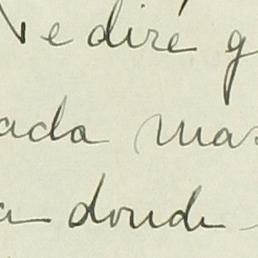 Te diré g
ada mas
a donde